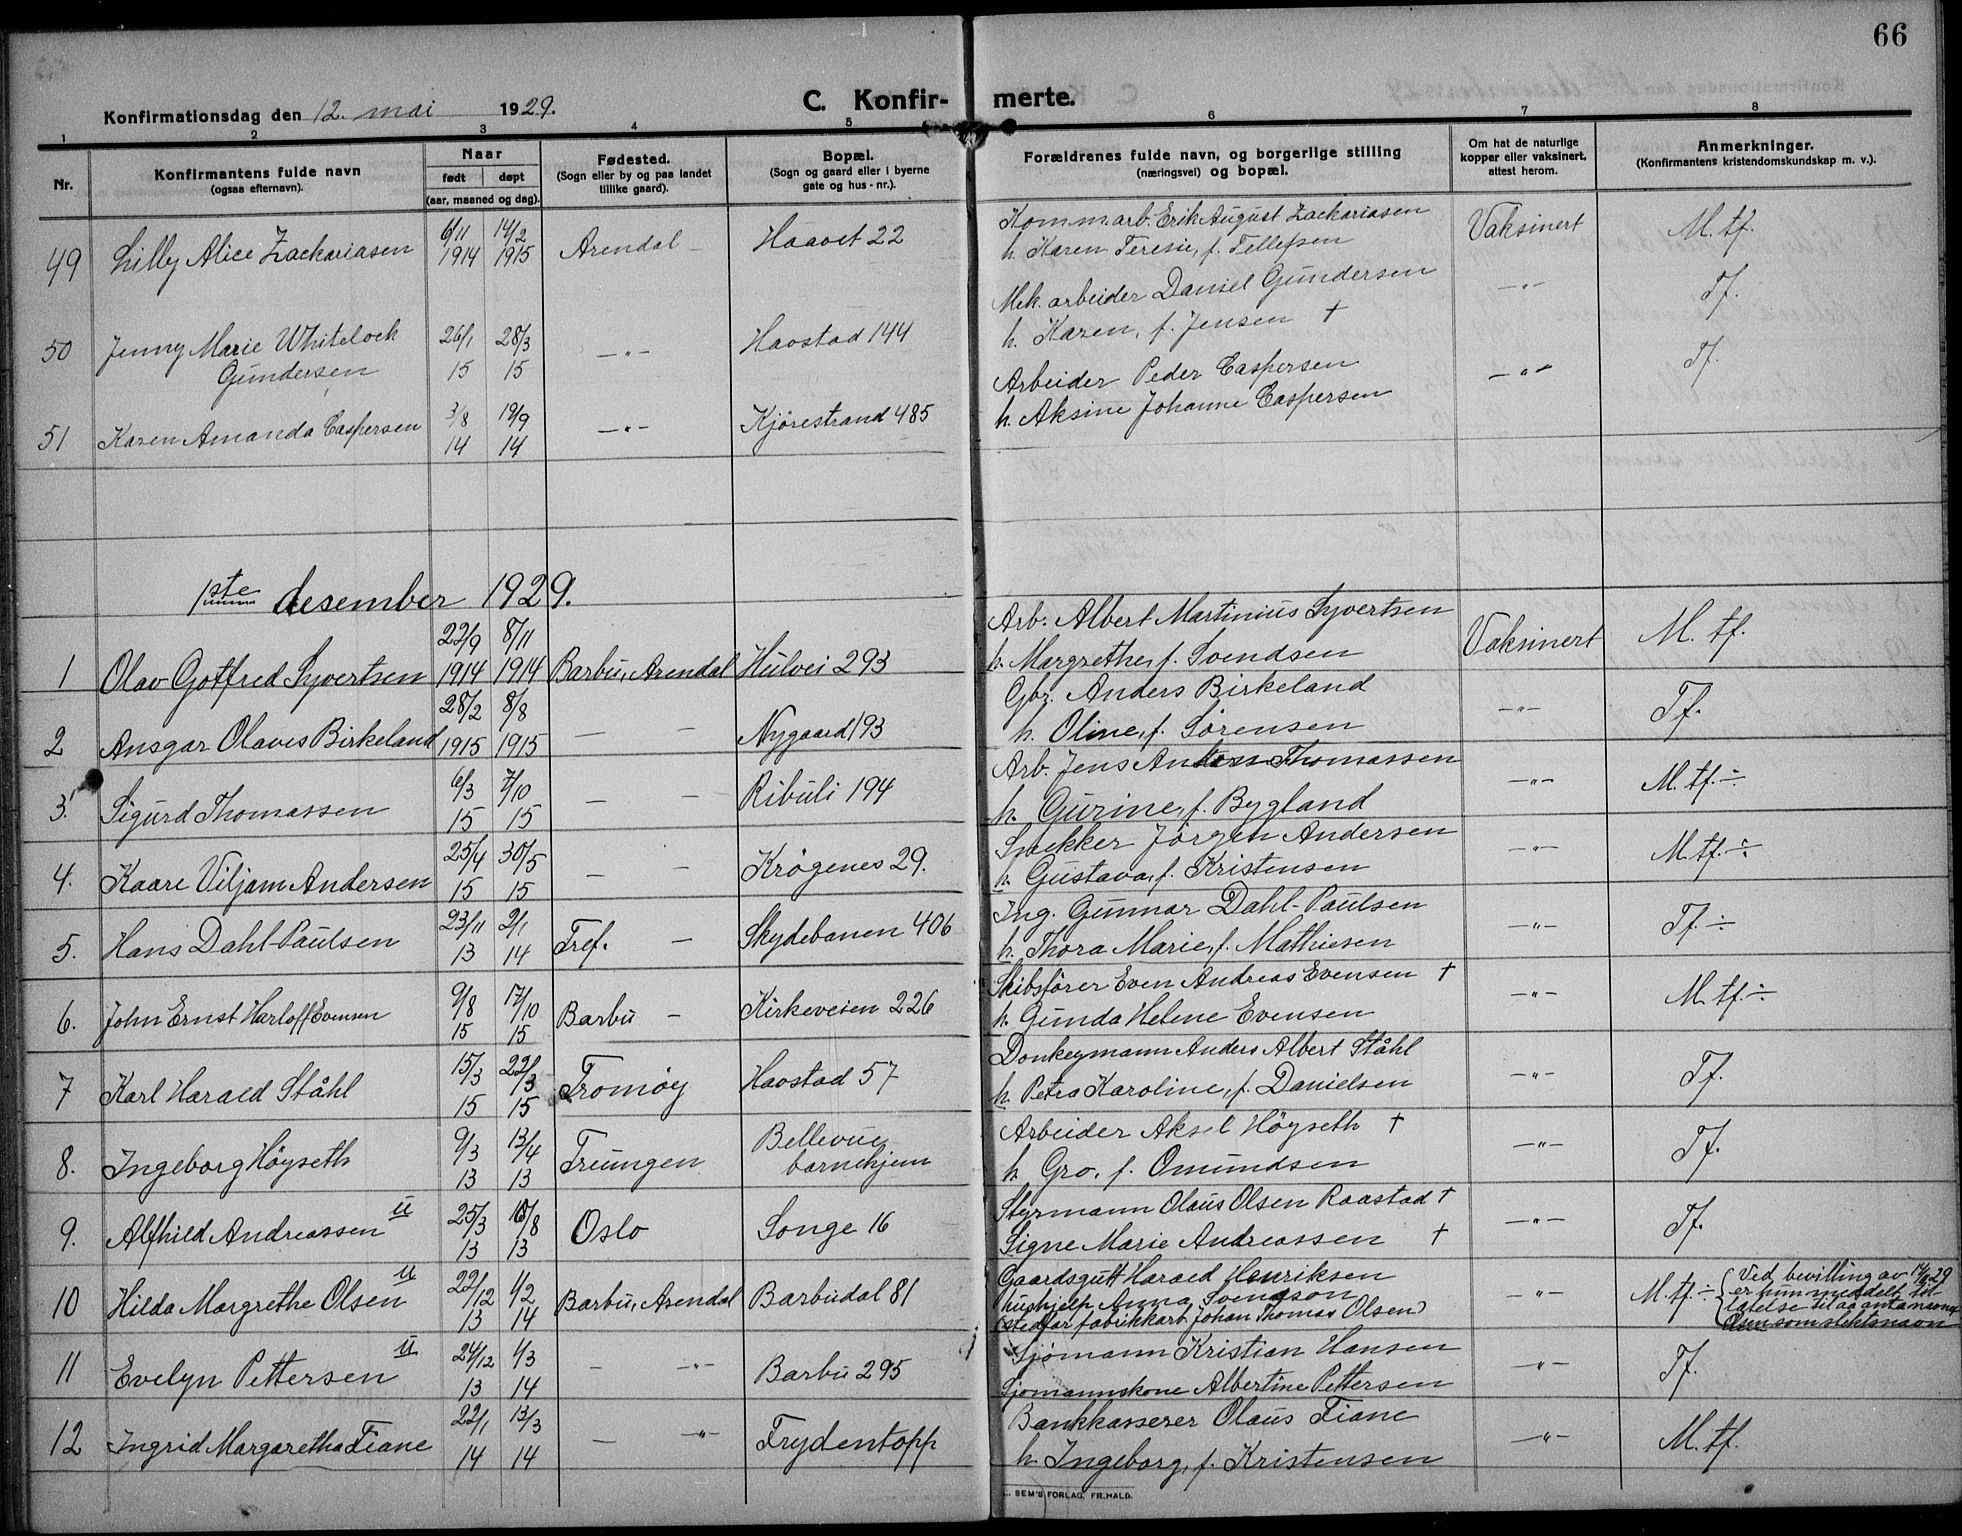 66
Konfirmationsdag den 12. mai 1929.
C. Konfir- merte.
1 2 3 4 5 6 7 8
Nr.
Konfirmantens fulde navn
(ogsaa efternavn).
Naar
født døpt
(aar, maaned og dag).
Fødested.
(Sogn eller by og paa landet
tillike gaard).
Bopæl.
(Sogn og gaard eller i byerne
gate og hus-nr.).
Forældrenes fulde navn, og borgerlige stilling
(næringsvei) og bopæl.
Om hat de naturlige
kopper eller vaksinert,
attest herom.
Anmerkninger.
(Konfirmantens kristendomskundskap m. v.).
49 Lilly Alice Zackariasen 6/11 1914 14/2 1915 Arendal – Haavet 22
Kommarb. Erik August Zackariasen
h. Karen Teresie, f. Tellefsen
Vaksinert M. tf.
50 Jenny Marie Whitelock
Gundersen
26/1 15 28/3 15 –"– Havstad 144
Mek. arbeider Daniel Gundersen
h. Karen, f. Jensen †
–"– Tf.
51 Karen Amanda Caspersen 3/8 14 19/9 14 –"– Kjørestrand 485
Arbeider Peder Caspersen
h. Aksine Johanne Caspersen
–"– Tf.
1ste desember 1929.
1 Olav Gotfred Syvertsen 22/9 1914 8/11 1914 Barbu, Arendal Hulvei 293
Arb. Albert Martinius Syvertsen
h. Margrethe, f. Svendsen
Vaksinert M. tf.
2 Ansgar Olaves Birkeland 28/2 1915 8/8 1915 – – Nygaard 193
Gbr. Anders Birkeland
h. Oline, f. Sörensen
–"– Tf.
3. Sigurd Thomassen 6/3 15 7/10 15 – – Ribuli 194
Arb. Jens Anders Thomassen
h. Gurine, f. Bygland
–"– M. tf. ÷
4. Kaare Viljam Andersen 25/4 15 30/5 15 – – Krögenes 29.
Snekker Jörgen Andersen
h. Gustava, f. Kristensen
–"– M. tf. ÷
5. Hans Dahl-Paulsen 23/11 13 2/1 14 Tref. – Skydebanen 406
Ing. Gunnar Dahl-Paulsen
h. Thora Marie, f. Mathiesen
–"– Tf. ÷
6. John Ernst Harloff Evensen 9/8 15 17/10 15 Barbu – Kirkeveien 226
Skibsfører Even Andreas Evensen †
h. Gunda Helene Evensen
–"– M. tf. ÷
7 Karl Harald Ståhl 15/3 15 22/3 15 Tromøy Havstad 57
Donkeymann Anders Albert Ståhl
h. Petra Karoline, f. Danielsen
–"– Tf.
8. Ingeborg Höyseth 9/3 13 13/4 13 Treungen Bellevue
barnehjem
Arbeider Aksel Höyseth †
h Gro, f. Omundsen
–"– Tf.
9. Alfhild Andreassen u 25/3 13 10/8 13 Oslo Songe 16
Styrmann Olaus Olsen Raastad †
Signe Marie Andreassen †
–"– Tf.
10 Hilda Margrethe Olsen u 22/12 13 1/2 14 Barbu, Arendal Barbudal 81
Gaardsgutt Harald Henriksen
hushjelp Anna Svendson
(stedfar fabrikkarb. Johan Thomas Olsen)
–"– M. tf. ÷
Ved bevilling av 29
er hun meddelt til-
latelse til aa anta navnet
Olsen som slektsnavn
11 Evelyn Pettersen u 24/12 13 1/3 14 – –"– Barbu 295
Sjömann Kristian Hansen
Sjomannskone Albertine Pettersen
–"– Tf.
12 Ingrid Margaretha Fiane 22/1 14 13/3 14 – –"– Frydentopp
Bankkasserer Olaus Fiane
h. Ingeborg, f. Kristensen
–"– M. tf.
SEM'S FORLAG. FR.HALD.